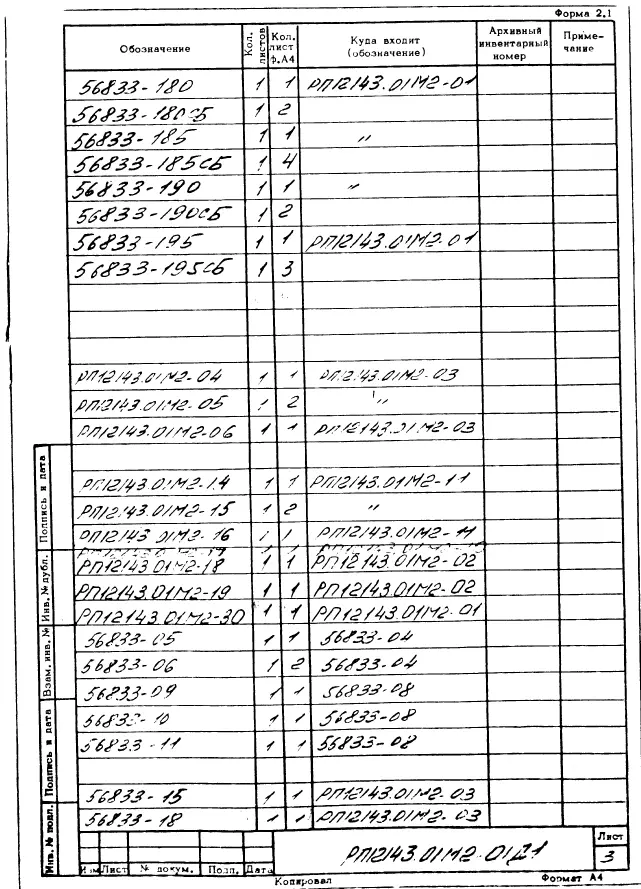 Форма 2.1
Обозначение Кол. листов Кол. лист ф.А4 Куда входит (обозначение) Архивный инвентарный номер Приме-чание
56833-180 1 1 РП12143.01М2-01
56833-180СБ 1 2
56833-185 1 1 "
56833-185СБ 1 4
56833-190 1 1 "
56833-190СБ 1 2
56833-195 1 1 РП12143.01М2-01
56833-195СБ 1 3
РП12143.01М2-04 1 1 РП12143.01М2-03
РП12143.01М2-05 1 2 "
РП12143.01М2-06 1 1 РП12143.01М2-03
РП12143.01М2-14 1 1 РП12143.01М2-11
РП12143.01М2-15 1 2 "
РП12143.01М2-16 1 1 РП12143.01М2-11
РП12143.01М2-18 1 1 РП12143.01М2-02
РП12143.01М2-19 1 1 РП12143.01М2-02
РП12143.01М2-30 1 1 РП12143.01М2-01
56833-05 1 1 56833-04
56833-06 1 2 56833-04
56833-09 1 1 56833-08
56833-10 1 1 56833-08
56833-11 1 1 56833-08
56833-15 1 1 РП12143.01М2-03
56833-18 1 1 РП12143.01М2-03
Подпись и дата
Инв. № дубл.
Взам. инв. №
Подпись и дата
Инв. № подл.
РП12143.01М2-01Д1
Лист
3
Изм Лист № докум. Подп. Дата
Копировал
Формат А4